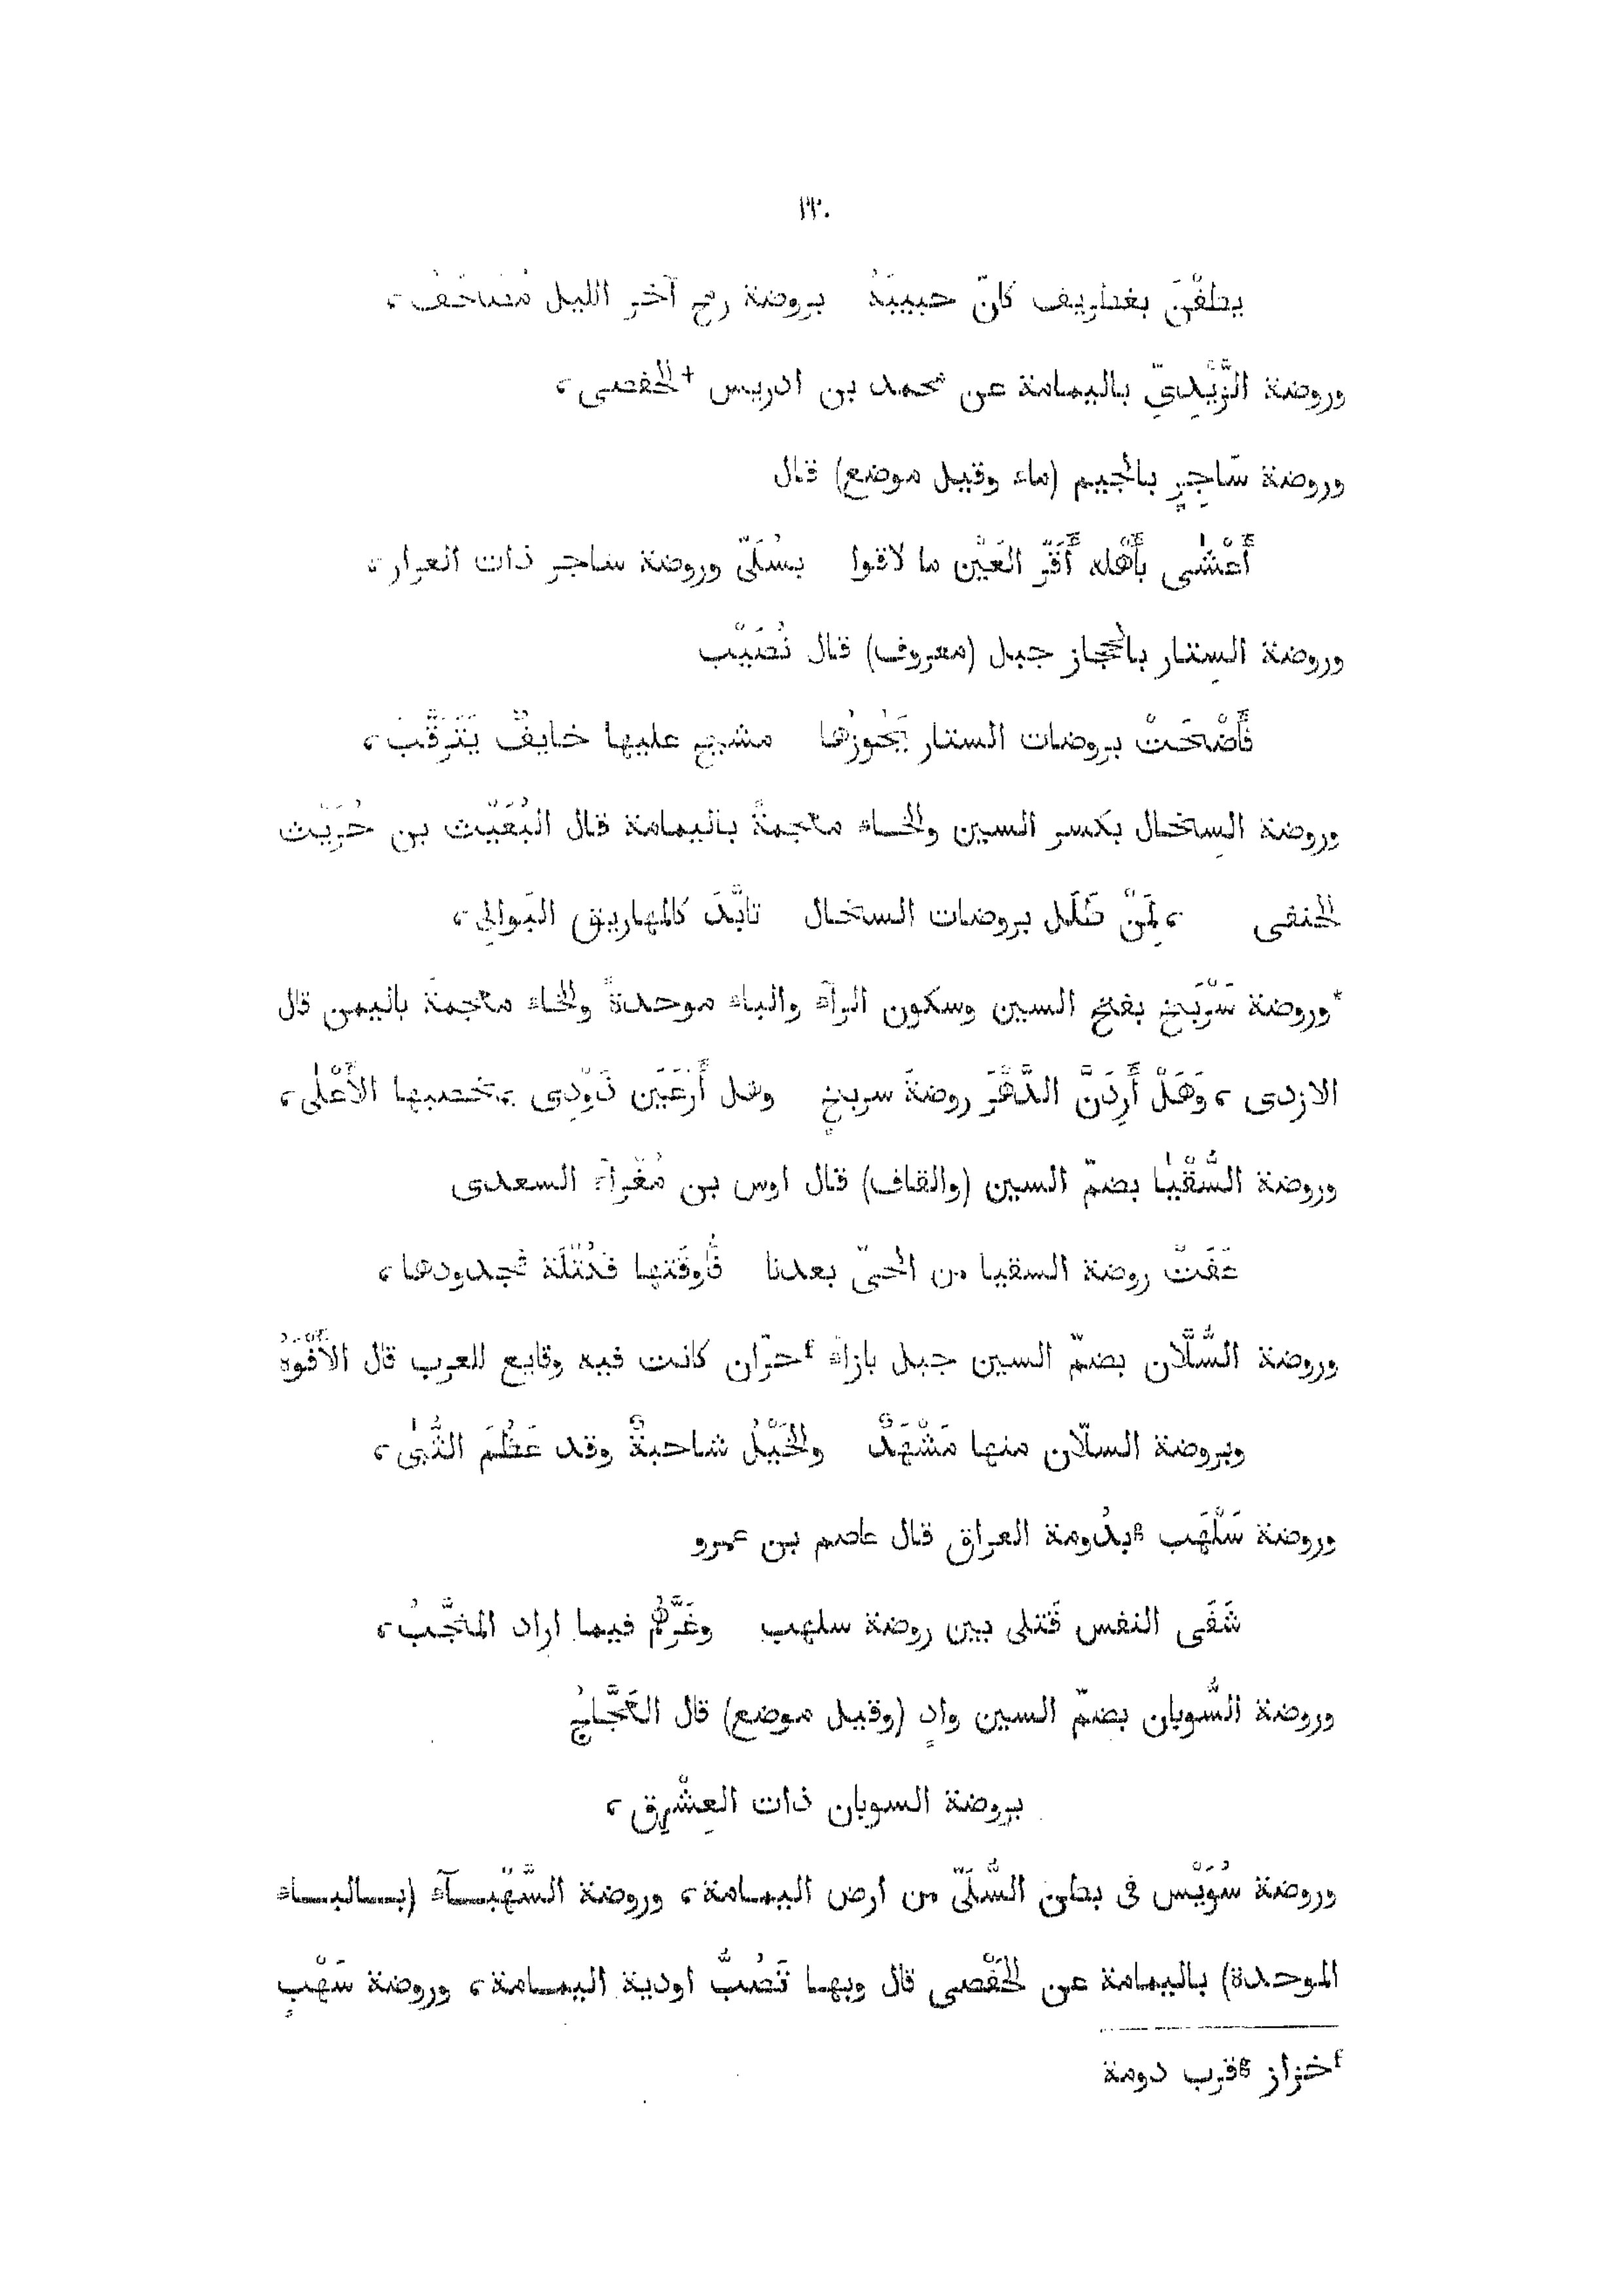 ٢٢٠
يطفْنَ بغطاريف كانّ حبيبَهُ بروضة رمح آخر الليل مُصْحَفُ ،
وروضة الزَّيْدِيّ باليمامة عن محمد بن ادريس +الحفصى ،
وروضة سَاجِرٍ بالجيم (ماء وقيل موضع) قال
أَعْشٰى بأَهْله أَقَرّ العَيْن ما لاقوا بسُلَىّ وروضة ساجر ذات العرار ،
وروضة السِتار بالحجاز جبل (معروف) قال نُصَيْب
فأَضْحَتْ بروضات الستار يَجُوزُها مشيح عليها خايفٌ يَتَرقَّبُ ،
وروضة السِخال بكسر السين والخاء معجمةً باليمامة قال البُعَيْث بن حُرَيْث
الحنفى ، لِمَنْ طَلَل بروضات السخال تابَّدَ كالمهاريق البَوالِي ،
*وروضة سَرْبَخ بفتح السين وسكون الرآء والباء موحدةً والخاء معجمة باليمن قال
الازدى ، وَهَلْ أَرِدَنَّ الدَّهْرَ روضةَ سربخٍ وهل أَرْعَيَن ذَوْدِى بخصبها الأَعْلٰى ،
وروضة السُّقْيٰا بضمّ السين (والقاف) قال اوس بن مُغْرآء السعدى
عَفَتْ روضة السقيا من الحىّ بعدنا فأُوقَتها فكُتْلَة فجدودها ،
وروضة السُّلَّان بضمّ السين جبل بازاء ᶠحزّان كانت فيه وقايع للعرب قال الأَفْوَهُ
وبروضة السلّان منها مَشْهَدٌ والخَيْلُ شاحبةٌ وقد عَظُمَ الثُّبٰى ،
وروضة سَلْهَب ᵍبدُومة العراق قال عاصم بن عمرو
شَفَى النفس قَتلى بين روضة سلهب وغَرَّهُم فيما اراد المنجَّبُ ،
وروضة السُّوبان بضمّ السين وادٍ (وقيل موضع) قال العَجَّاجُ
بروضة السوبان ذات العِشْرِق ،
وروضة سُوَيْس فى بطن السُّلَىّ من ارض اليمامة ، وروضة السَّهْبآء (بالباء
الموحدة) باليمامة عن الحَفْصى قال وبها تَصُبُّ اودية اليمامة ، وروضة سَهْبٍ
ᶠخزاز ᵍقرب دومة